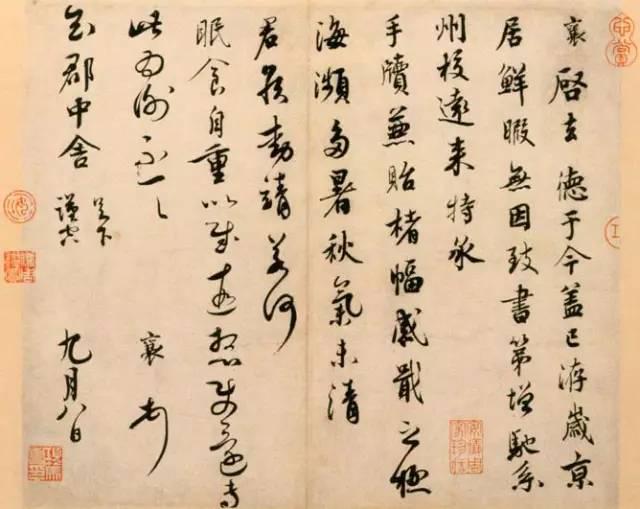 襄啓去德于今蓋已洊歲京
居鮮暇無因致書第增馳系
州校遠來特承
手牘兼貽楮幅感戢之極
海瀕多暑秋氣未清
君侯動靖若何
眠食自重以慰遠想使還專
此為謝不一一
襄頓首
知郡中舍
足下
謹空
九月八日